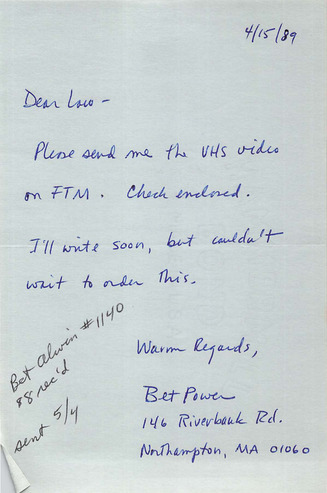 4/15/89
Dear Lou -
Please send me the VHS video
on FTM. Check enclosed.
I'll write soon, but couldn't
wait to order this.
Warm Regards,
Bet Power
146 Riverbank Rd.
Northampton, MA 01060
Bet #1140
$8 rec'd
sent 5/4